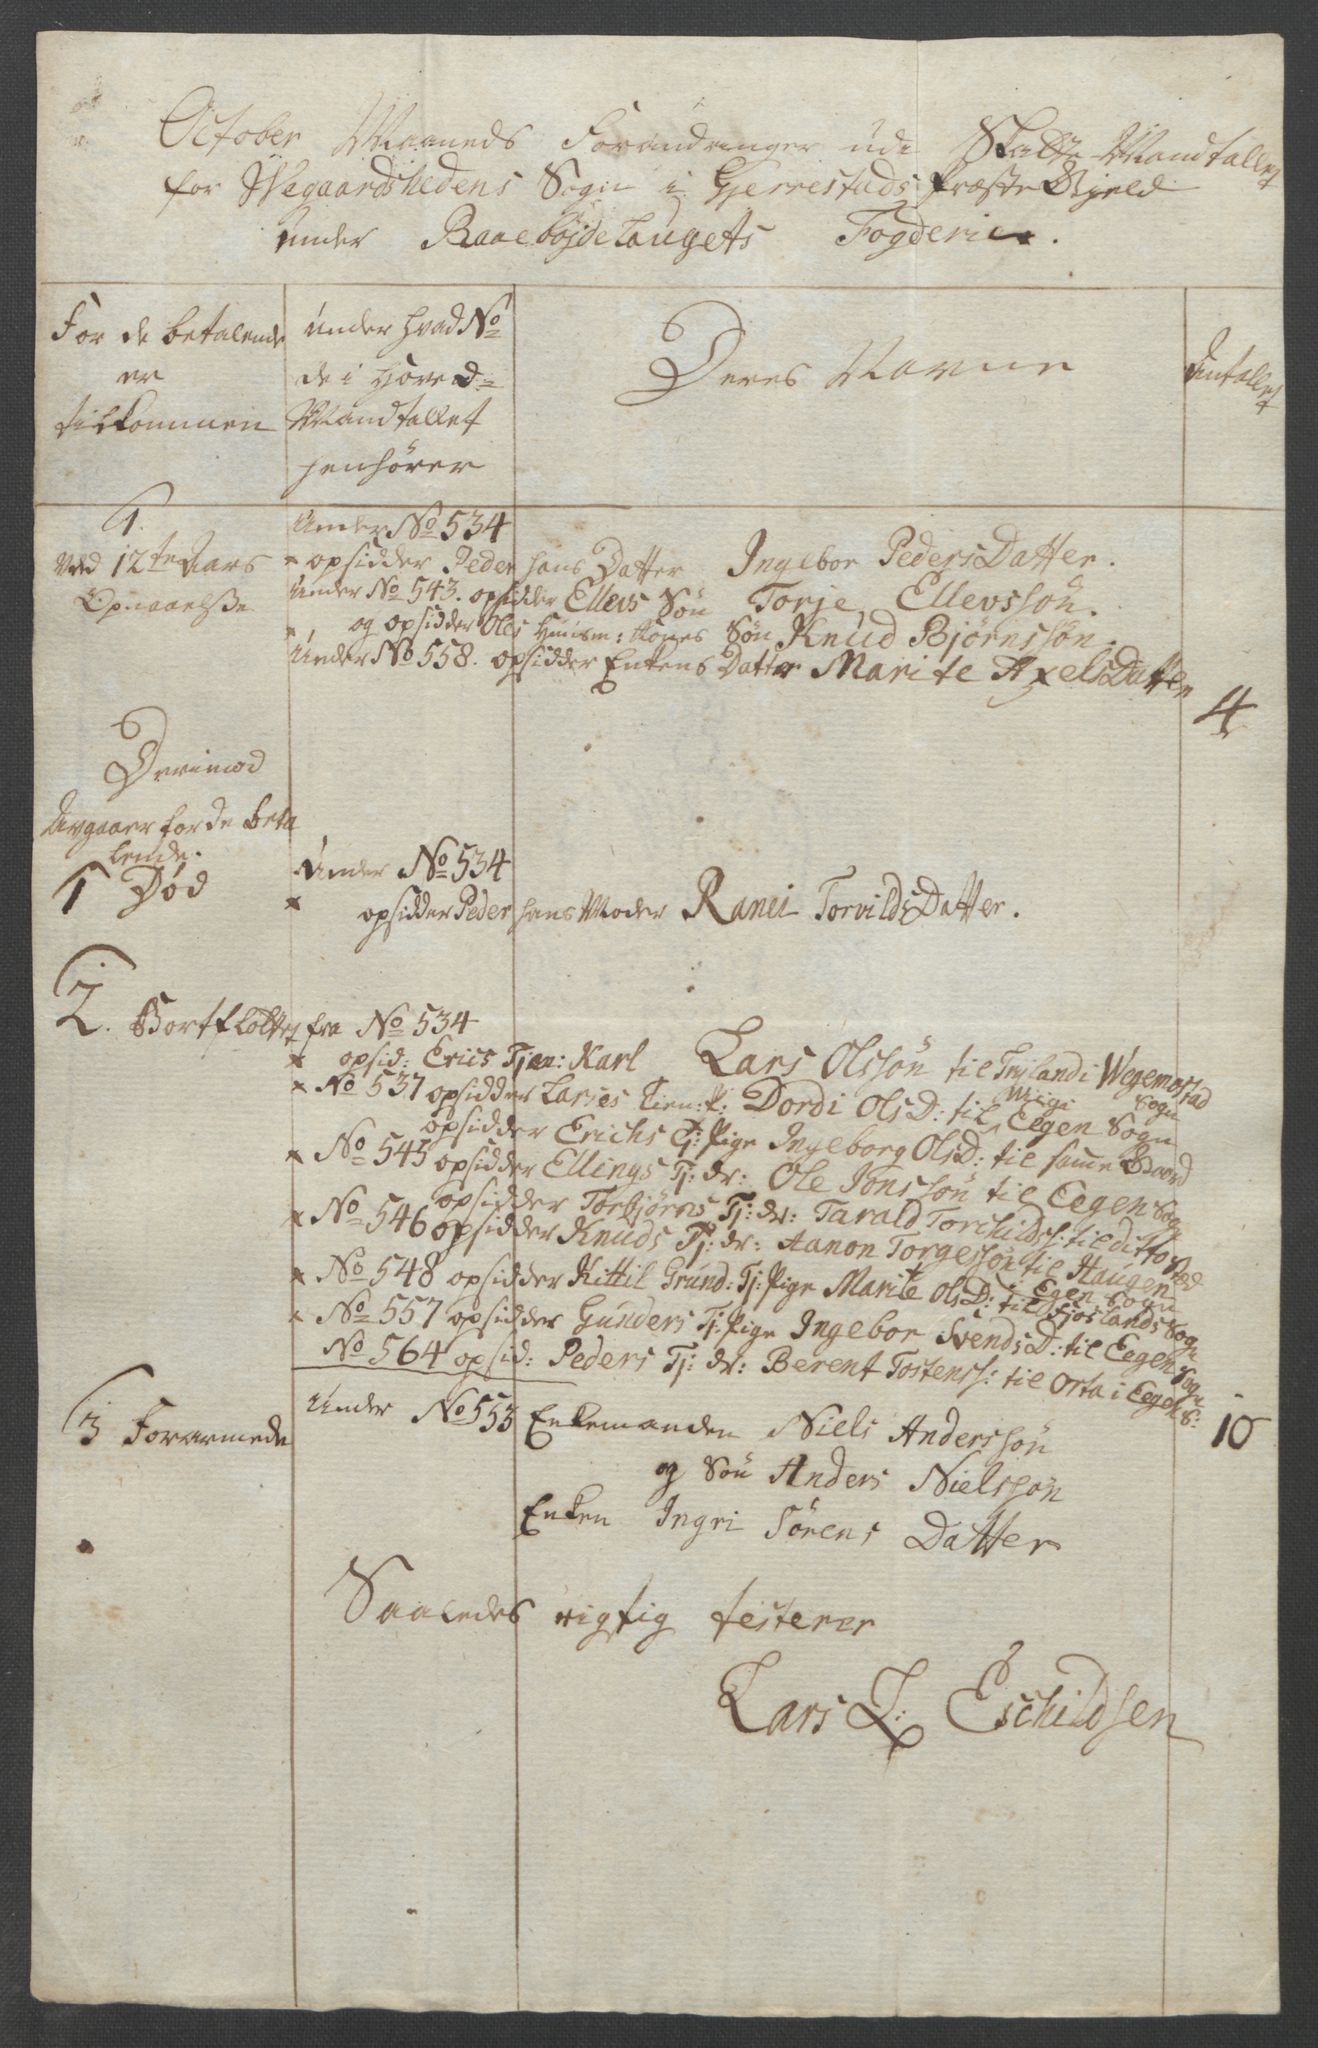 October Maaneds Forandringer udi Skatte Mandtallet
for Wegaardshedens Sogn i Gjerrestads Præste Gjeld
under Raaebøjdelaugets Fogderie.
For de betalende
er
tilkommen
under hvad No
de i Hoved-
Mandtallet
henhører
Deres Navne
Antallet
1.
Ved 12te Aars
Opnaaelsse
Under No 534
× opsidder Peder hans Datter Ingebor PedersDatter.
Under No 543. opsidder Ellevs Søn Torje Ellevssøn.
× og opsidder Oles Huusm: Kones Søn Knud Bjørnssøn.
Under No 558. opsidder Enkens Datter Marite AxelsDatter
4
Derimod
Avgaaer for de beta
lende.
1 Død
Under No 534
× opsidder Peder hans Moder Ranei TorvildsDatter.
2. Bortfløttet fra No 534
× opsid: Erics Tjen: Karl Lars Olssøn til Trylandi Wegemostad
Sogn
× No 537 opsidder Larses Tien: P: Dordi OlsD: til Migi Eegen Sogn
opsidder Erichs Tj: Pige Ingeborg OlsD: til samme Gaard
× No 545 opsidder Ellings Tj: dr: Ole Jonssøn til Eegen Sogn
opsidder Torbjørns Tj: dr: Tarald Torchilds: til ditto Sted
× No 546 opsidder Knuds Tj: dr: Aanon Torgessøn til Haugen
Egen Sogn
× No 548 opsidder Kittil Grund: Tj: Pige Marite OlsD: til Fjoslands Sogn
× No 557 opsidder Gunders Tj: Pige Ingebor SvendsD: til Eegen Sogn
No 564 opsid: Peders Tj: dr: Berent Tostenss: til Orta i Eegen S:
10
3 Forarmede
Under No 553 Enkemanden Niels Anderssøn
og Søn Anders Nielssøn
Enken Ingri Sørens Datter
Saaledes rigtig testerer
Lars L: Eschildsen